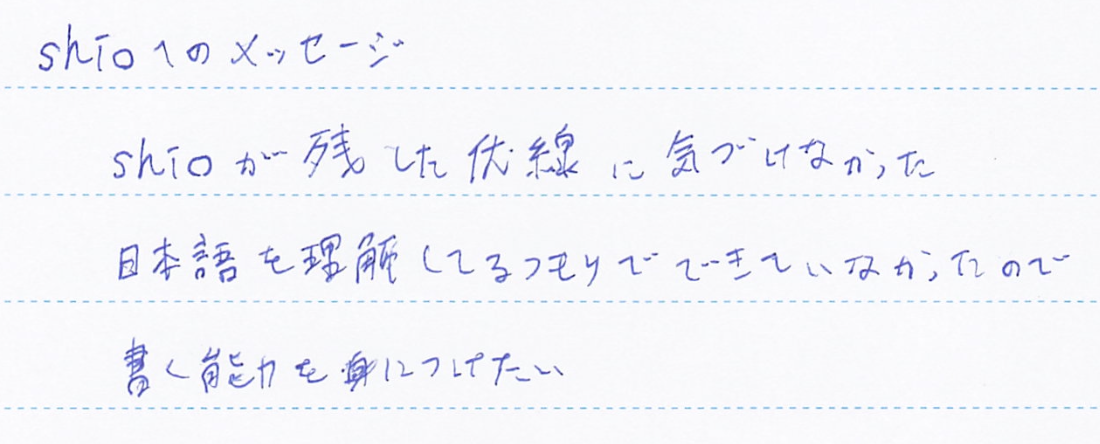 shioへのメッセージ
shioが残した伏線に気づけなかった
日本語を理解してるつもりでできていなかったので
書く能力を身につけたい